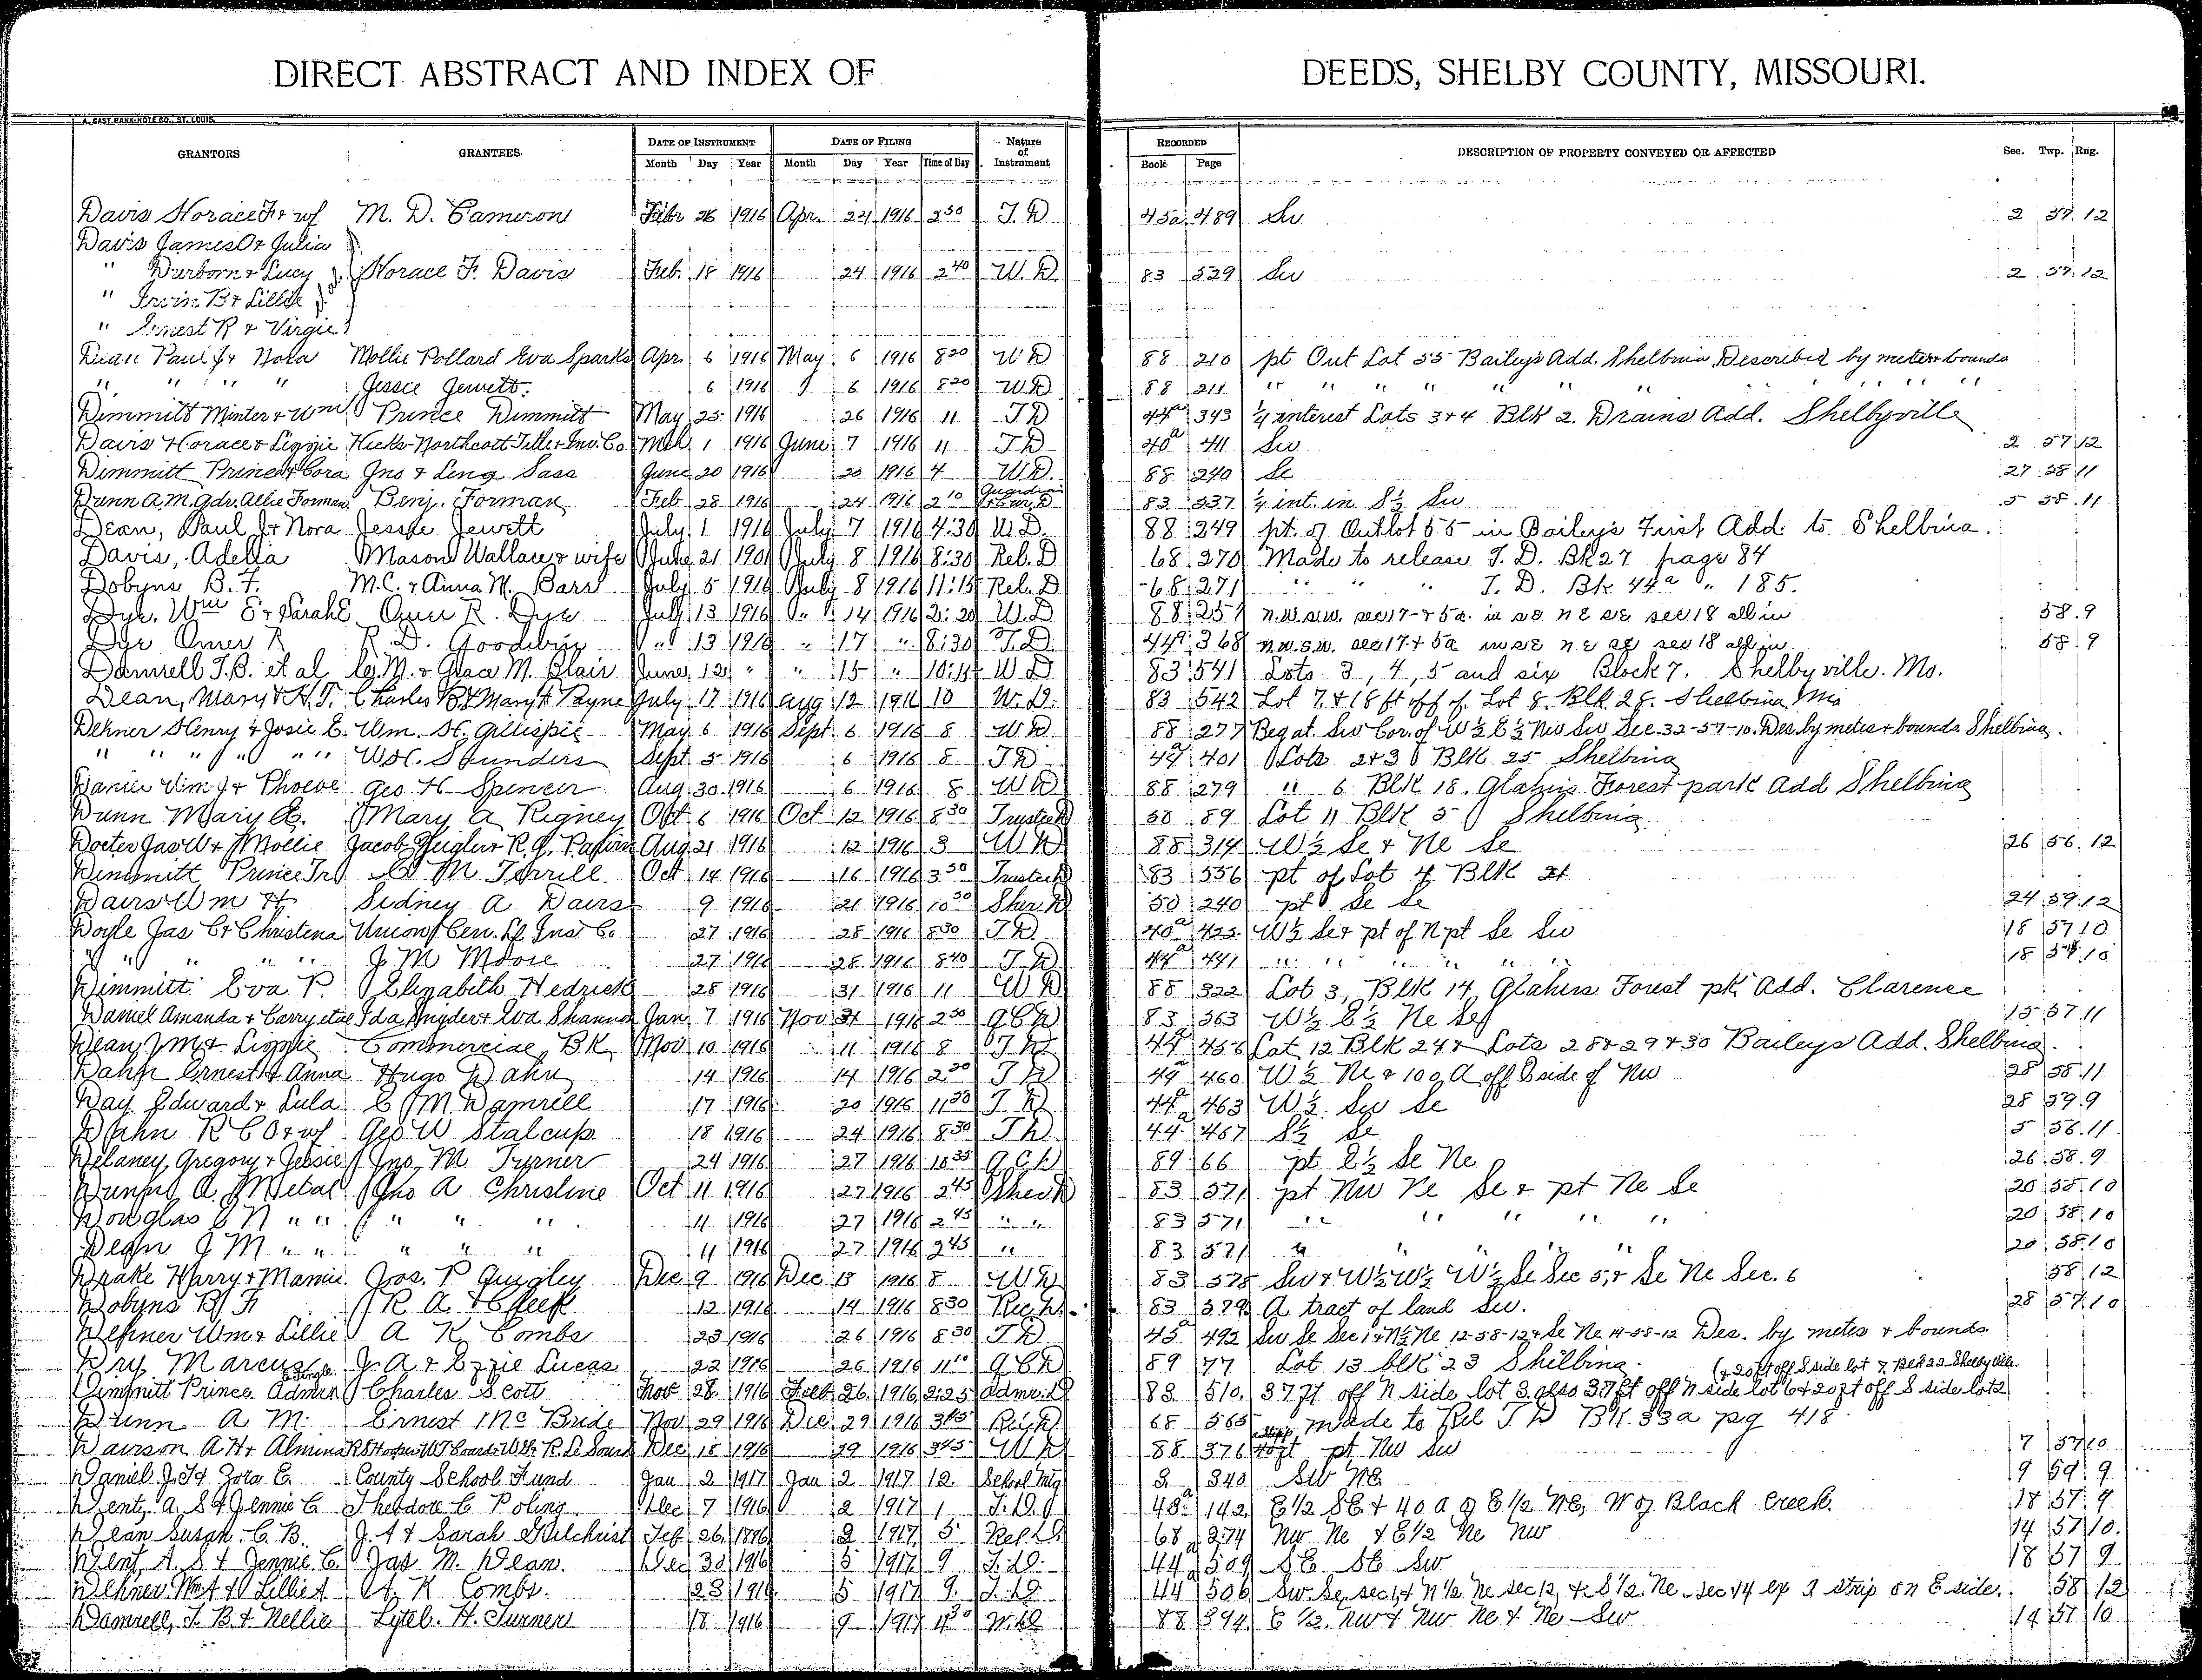 DIRECT ABSTRACT AND INDEX OF DEEDS, SHELBY COUNTY, MISSOURI.
A. GAST BANK-NOTE CO., ST. LOUIS.
GRANTORS GRANTEES DATE OF INSTRUMENT DATE OF FILING Nature of Instrument RECORDED DESCRIPTION OF PROPERTY CONVEYED OR AFFECTED Sec. Twp. Rng.
Month Day Year Month Day Year Time of Day Book Page
Davis Horace F & wf M. D. Cameron Feb 26 1916 Apr. 24 1916 2 30 T. D 45a 489 Sw 2 57 12
Davis James O & Julia
" Durborn & Lucy Horace F. Davis Feb. 18 1916 24 1916 2 40 W. D. 83 529 Sw 2 57 12
" Irvin B & Lillie
" Ernest R & Virgie
Dean Paul J & Nora Mollie Pollard Eva Sparks Apr. 6 1916 May 6 1916 8 20 W D 88 210 pt Out Lot 55 Bailey's Add. Shelbina Described by metes & bounds
" " " " Jessie Jewett. 6 1916 6 1916 8 20 W. D. 88 211 " " " " " " "
Dimmitt Minter & Wm Prince Dimmitt May 25 1916 26 1916 11 T D 44a 343 1/4 interest Lots 3 & 4 Blk 2. Drains Add. Shelbyville
Davis Horace & Lizzie Hicks-Northcott Title & Inv. Co Mch 1 1916 June 7 1916 11 T D 40a 411 Sw 2 57 12
Dimmitt Prince & Cora Jno & Lena Sass June 20 1916 20 1916 4 W. D. 88 240 Se 27 58 11
Dunn A. M. Gdn. Allie Forman Benj. Forman Feb 28 1916 24 1916 2 10 Guardian 83 537 1/4 int. in S 1/2 Sw 5 58 11
Dean, Paul J & Nora Jessie Jewett July 1 1916 July 7 1916 4:30 W. D. 88 249 pt. of Outlot 55 in Bailey's First Add. to Shelbina.
Davis, Adelia Mason Wallace & wife June 21 1901 July 8 1916 8:30 Rel. D 68 270 Made to release T. D. Bk 27 page 84
Dobyns B. F. M. C. & Anna M. Barr July 5 1916 July 8 1916 11:15 Rel. D 68 271 " " " T. D. Bk 44a " 185.
Dye, Wm E & Sarah E Omer R. Dye July 13 1916 " 14 1916 2:20 W. D 88 257 N.W. S.W. sec 17 & 5a. in SE NE SE sec 18 all in 58 9
Dye Omer R R. D. Goodwin " 13 1916 " 17 " 8:30 T. D. 44a 368 N.W. S.W. sec 17 & 5a in SE NE SE sec 18 all in 58 9
Damrell T. B. et al G. M. & Grace M. Blair June 12 " " 15 " 10:15 W D 83 541 Lots 3, 4, 5 and six Block 7. Shelbyville. Mo.
Dean, Mary & H. T. Charles B & Mary Payne July 17 1916 Aug 12 1916 10 W. D. 83 542 Lot 7 & 18 ft off of Lot 8. Blk. 28. Shelbina, Mo
Dehner Henry & Josie E. Wm. H. Gillispie May 6 1916 Sept 6 1916 8 W D 88 277 Beg at Sw Cor. of W 1/2 E 1/2 Nw Sw Sec 32-57-10. Des. by metes & bounds Shelbina.
" " " " " " W. H. Saunders Sept. 5 1916 6 1916 8 T D 44a 401 Lots 2 & 3 Blk 25 Shelbina
Daniel Wm J & Phoebe Geo. H. Spencer Aug. 30 1916 6 1916 8 W D 88 279 " 6 Blk 18. Glahns Forest park Add Shelbina
Dunn Mary E. Mary A Rigney Oct 6 1916 Oct 12 1916 8 30 Trustee D 50 89 Lot 11 Blk 5 Shelbina.
Aug 21 1916 12 1916 3 W D 88 314 W 1/2 Se & Ne Se 26 56 12
Dimmitt Prince Tr C M Terrill Oct 14 1916 16 1916 3 30 Trustee D 83 556 pt of Lot 4 Blk 21
Davis Wm H Sidney A Davis 9 1916 21 1916 10 30 Sher. D 50 240 pt Se Se 24 59 12
Doyle Jas C & Christena Union Cen. Lf Ins Co 27 1916 28 1916 8 30 T D 40a 425 W 1/2 Se & pt of N pt Se Sw 18 57 10
" " " " J M Moore 27 1916 28 1916 8 40 T. D. 44a 441 " " " " " 18 57 10
Dimmitt Eva P. Elizabeth Hedrick 28 1916 31 1916 11 W D 88 322 Lot 3, Blk 14 Glahns Forest pk Add. Clarence
Daniel Amanda & Carry et al Ida Snyder & Eva Shannon Jan 7 1916 Nov 1916 2 30 Q C D 83 563 W 1/2 E 1/2 Ne Se 15 57 11
Dean J M & Lizzie Commercial Bk Nov 10 1916 11 1916 8 T D 44a 456 Lot 12 Blk 24 & Lots 28 & 29 & 30 Baileys Add. Shelbina.
Dahn Ernest & Anna Hugo Dahn 14 1916 14 1916 2 30 T D 44a 460 W 1/2 Ne & 100 A off S side of Nw 28 58 11
Day Edward & Lula C M Damrell 17 1916 20 1916 11 30 T D 44a 463 W 1/2 Sw Se 28 59 9
Dahn R C O & wf Geo W Stalcup 18 1916 24 1916 8 30 T D. 44a 467 S 1/2 Se 5 58 11
Delaney, Gregory & Jessie Jno. M Turner 24 1916 27 1916 10 35 Q. C. D 89 66 pt. E 1/2 Se Ne 26 58 9
Dunn A M et al Jno A Christine Oct 11 1916 27 1916 2 45 Sher D 83 571 pt Nw Ne Se & pt Ne Se 20 58 10
Douglas C N " " " " " 11 1916 27 1916 2 45 " " 83 571 " " " " " 20 58 10
Dean J M " " " " " 11 1916 27 1916 2 45 " 83 571 " " " " 20 58 10
Drake Harry & Mamie. Jos. P Quigley Dec 9 1916 Dec 13 1916 8 W D 83 578 Sw & W 1/2 W 1/2 W 1/2 Se Sec 5, & Se Ne Sec. 6 58 12
Dobyns B F R A Cleek 12 1916 14 1916 8 30 83 579 A tract of land Sw. 28 57 10
Dehner Wm & Lillie A K Combs 23 1916 26 1916 8 30 T D. 45a 492 Sw Se Sec 1 & N 1/2 Ne 12-58-12 & Se Ne 14-58-12 Des. by metes & bounds.
Dry Marcus single J. A & Ozzie Lucas 22 1916 26 1916 11 10 Q C D 89 77 Lot 13 blk 23 Shelbina.
(& 20 ft off S side lot 7 Blk 22 Shelbyville.
Dimmitt Prince Admr Charles Scott Nov 28 1916 Feb 26 1916 2:25 Admr. D 83 510. 37 ft off N side lot 3 also 37 ft off N side lot 6 & 20 ft off S side lot 2
Dunn A M. Ernest McBride Nov 29 1916 Dec 29 1916 3 45 68 565 Made to Rel T D BK 33a pg 418
Davison A H & Almina Dec 18 1916 29 1916 3 45 W D 88 376 pt Nw Sw 7 57 10
Daniel J. H & Zora E. County School Fund Jan 2 1917 Jan 2 1917 12 School Mtg 3 340 SW NE 9 59 9
Dent, A. S & Jennie C Theodore C Poling Dec 7 1916 2 1917 1 T. D. 45a 142 E 1/2 SE & 40 a of E 1/2 NE, W of Black Creek. 18 57 9
Dean Susan C. B. J. A & Sarah Gilchrist Feb 26 1896 2 1917 5 Rel D. 68 274 NW Ne & E 1/2 Ne NW 14 57 10.
Dent, A. S & Jennie C. Jas M. Dean. Dec 30 1916 5 1917 9 T. D. 44a 509 SE SE SW 18 57 9
Dehner, Wm A & Lillie A A. K Combs. 23 1916 5 1917 9. T. D. 44a 506 SW Se, sec 1, & N 1/2 Ne sec 12, & S 1/2 Ne sec 14 ex a strip on E side. 58 12
Damrell, T. B. & Nellie H. Turner 18 1916 9 1917 W. D 88 394 E 1/2 NW & NW Ne & Ne SW 14 57 10